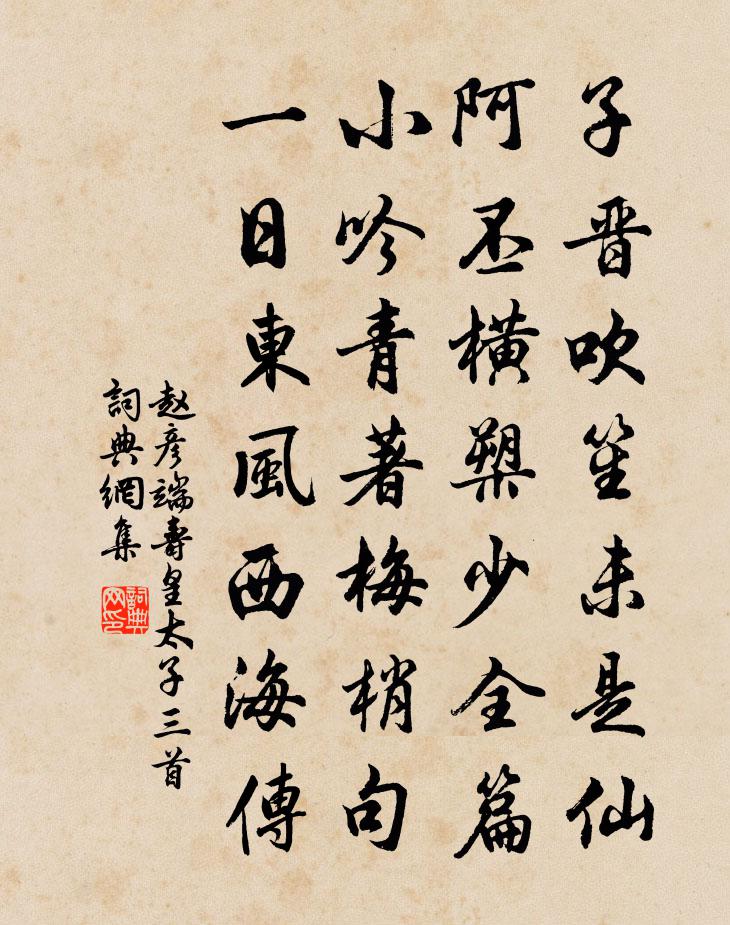 子晋吹笙未是仙
阿丕横槊少全篇
小吟青著梅梢句
一日東風西海傳
赵彦端壽皇太子三首
詞典網集
詞典网印